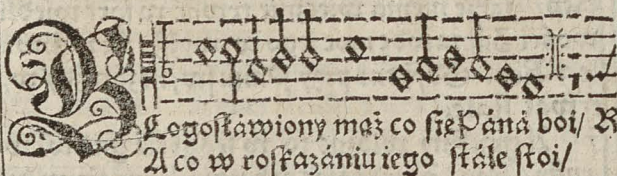 BŁogosłáwiony mąż co sięPáná boi/ R
A co w roskazániu iego stále stoi/